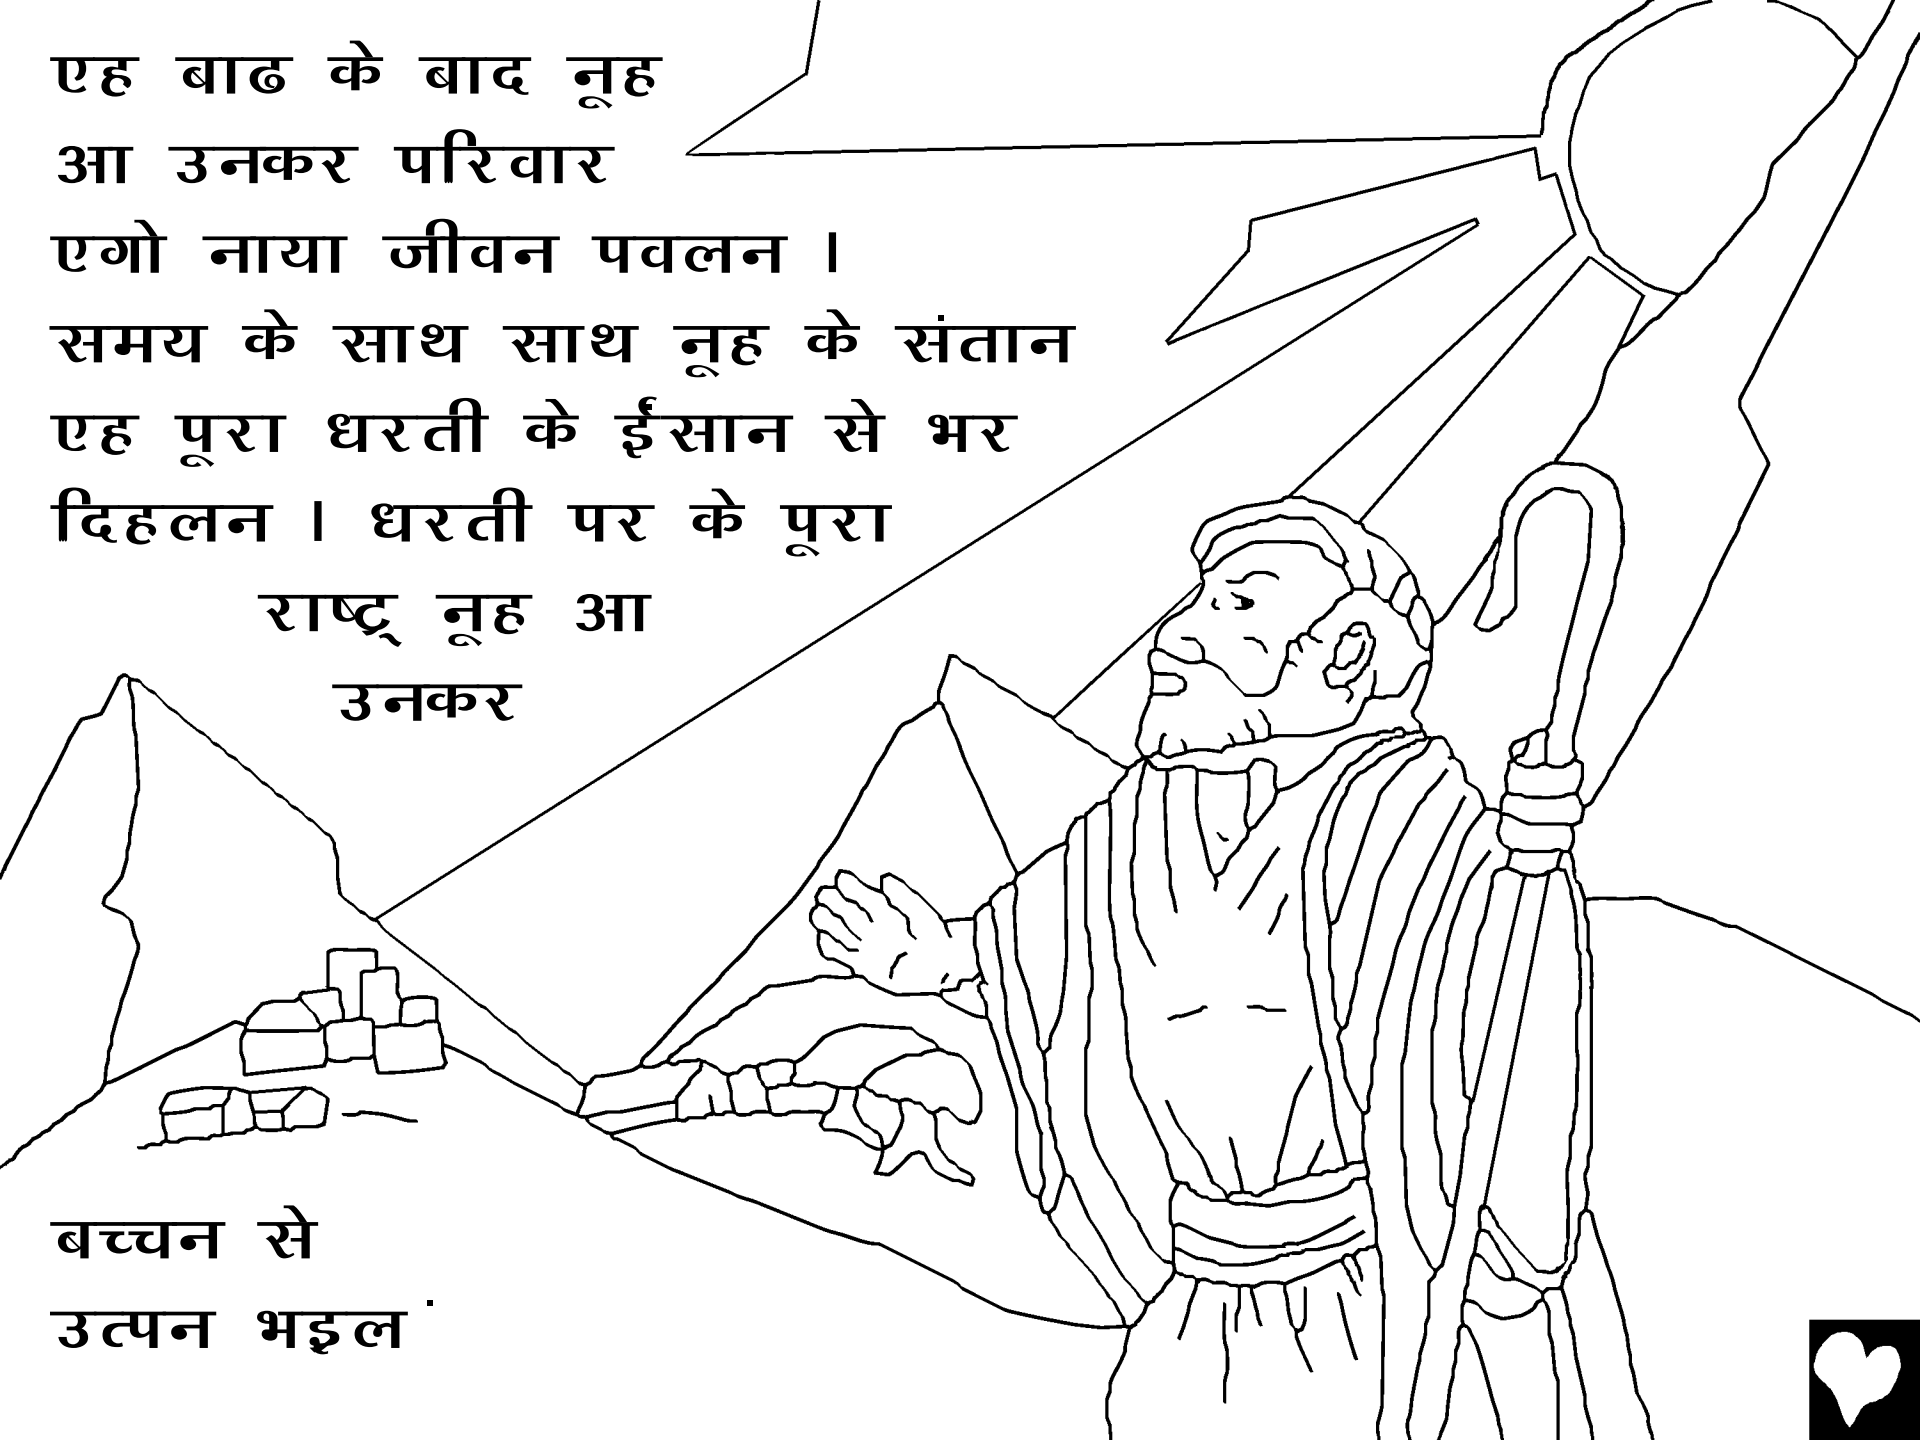 एह बाढ के बाद नूह
आ उनकर परिवार
एगो नाया जीवन पवलन ।
समय के साथ साथ नूह के संतान
एह पूरा धरती के ईंसान से भर
दिहलन । धरती पर के पूरा
राष्ट्र् नूह आ
उनकर
बच्चन से
उत्पन भइल ं